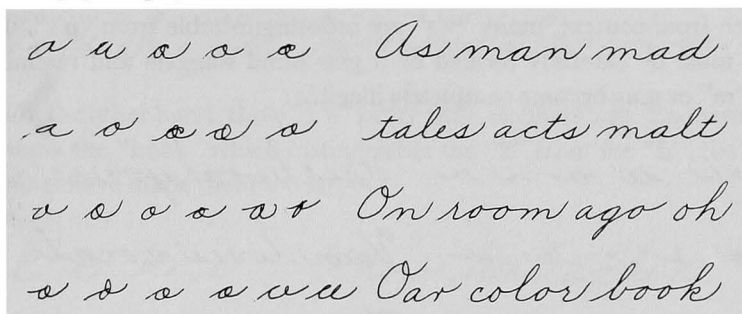 a u a o a As man mad
a o a a o tales acts malt
o o o a a o On room ago oh
a o o a u u Oar color book